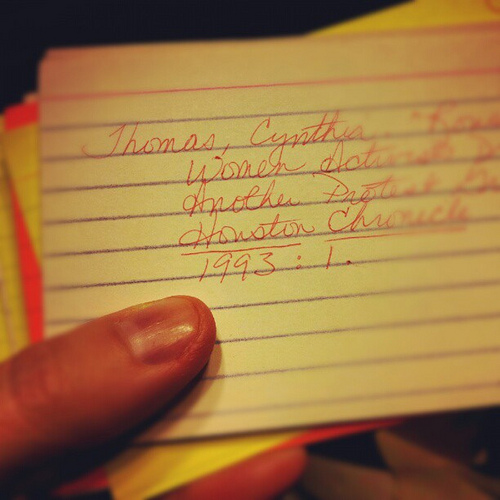 Thomas, Cynthia. "
Women Activists
Another Protest
Houston Chronicle
1993: 1.